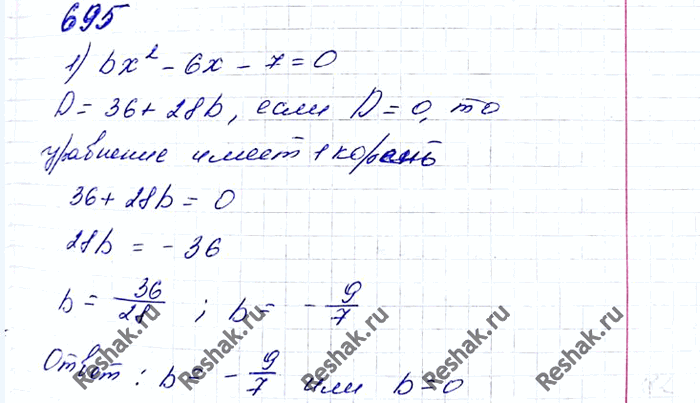 695
1) bx² - 6x - 7 = 0
D = 36 + 28b, если D = 0, то
уравнение имеет 1 корень
36 + 28b = 0
28b = - 36
b = - 36/28 ; b = - 9/7
Ответ: b = - 9/7 или b = 0
Reshak.ru Reshak.ru Reshak.ru Reshak.ru Reshak.ru